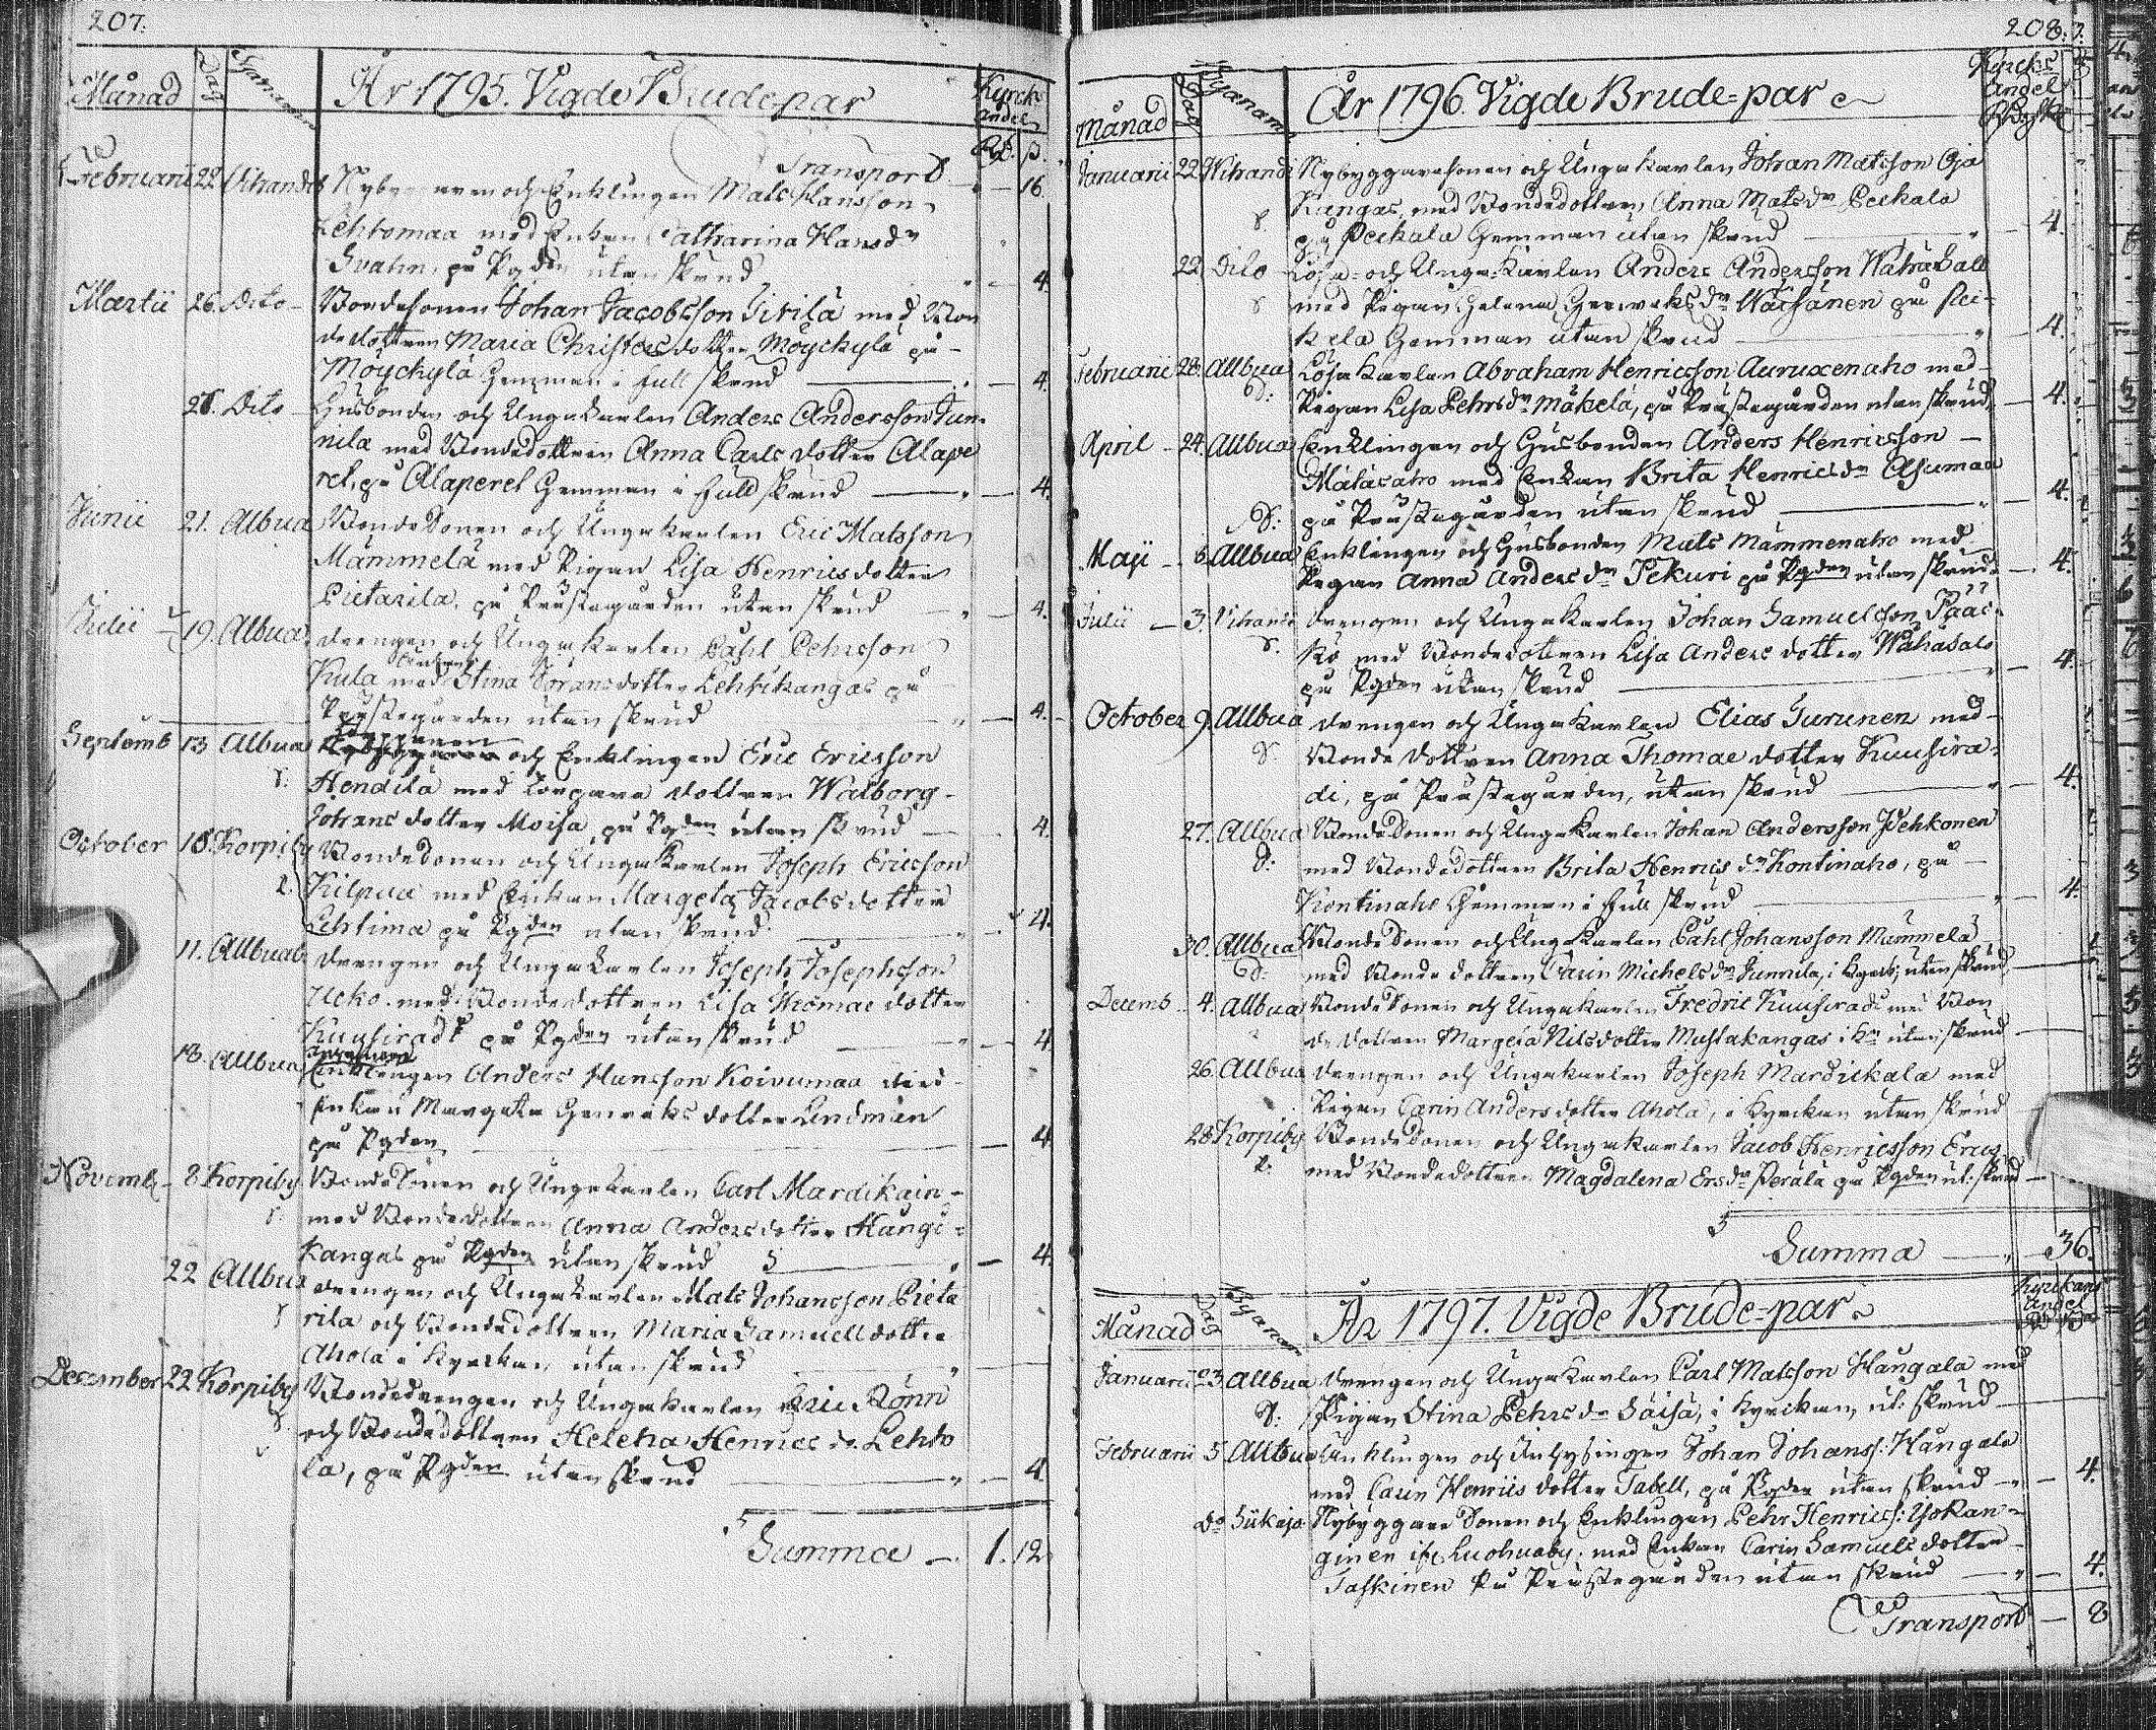 207.
Månad Dag Bynamn År 1795. Vigde Brude-par Kyrck andel
Rd. ß.
Transport — 16.
Februarii 22. Vihandi Nybyggaren och Enklingen Mats Hansson
Lehtomaa med Enkan Catharina Hansdr
Svahn, på Pgden utan skrud 4.
Martii 26. Dito Bondesonen Johan Jacobsson Sirilä med Bon
dedottren Maria Christers dotter Möyckylä på
Möyckylä Hemman i full skrud 4.
28. Dito Husbonden och Ungakarlen Anders Andersson Jun
nila med Bondedottren Anna Carls dotter Alape
ret, på Alaperet Hemman i full skrud 4.
Junii 21. Albua Bonde Sonen och Ungakarlen Eric Matsson
Mämmelä med Pigan Lisa Henrics dotter
Pietarila, på Prästegården utan skrud 4.
Julii 19. Albua drengen och Ungakarlen Påhl Pehrsson
Kula med Enkan Stina Göransdotter Lehtikangas på
Prästegården utan skrud 4.
Septemb 13 Albua och Enklingen Eric Ericsson
Hendilä med Torpare dottren Walborg
Johans dotter Moisa, på Pgden utan skrud 4.
October 18. Korpiby Bonde Sonen och Ungakarlen Joseph Ericsson
Kilpua med Enkan Margeta Jacobs dotter
Lehtima på Pgden utan skrud 4.
11. Allbua drengen och Ungakarlen Joseph Josephsson
Ucko med Bondedottren Lisa Thomae dotter
Kuusiradi på Pgden utan skrud 4.
18. Allbua Enklingen Anders Hansson Koivumaa med
Enkan Margeta Genriks dotter Lindman
på Pgden 4
Novemb. 8 Korpiby Bonde Sonen och Ungakarlen Carl Mardikain
med Bondedottren Anna Anders dotter Hangi=
kangas på Pgden utan skrud 4.
22 Allbua drengen och Ungakarlen Mats Johansson Pieta
rila och Bondedottren Maria Samuell dotter
Ahola i Kyrkan utan skrud
December 22 Korpiby Bondedrengen och Ungakarlen Eric Rönn
och Bondedottren Helena Henrics dr Lehto
la, på Pgden utan skrud 4.
Summa — 1. 12
208.
Månad Dag Bynamn År 1796. Vigde Brude=par Kyrcks andel
Januarii 22. Vihandi Nybyggaresonen och Unga karlen Johan Matsson Oja
Kangas, med Bondedottren Anna Mats dr Peckala
på Peckala Hemman utan skrud 4.
22. Dito Lösa- och Ungakarlen Anders Andersson Wähäsalo
med Pigan Helena Genreks dr Wäisänen på Pei-
kela Hemman utan skrud 4.
Februarii 28. Allbua Lösa karlen Abraham Henricsson Auruxenaho med
Pigan Lisa Pehrs dr Mäkelä, på Prästegården utan skrud 4.
April 24. Allbua Enklingen och Husbonden Anders Henricsson
Mätäsaho med Enkan Brita Henrics dr Asumaa
på Prästegården utan skrud 4.
Maji 6. Allbua Enklingen och Husbonden Mats Mämmenaho med
Pigan Anna Anders dr Pekuri på Pgden utan skrud 4.
Julii 3. Vihandi drengen och Unga Karlen Johan Samuelsson Pääs-
kö med Bondedottren Lisa Anders dotter Wähäsalo
på Pgden utan skrud 4.
October 9. Allbua drengen och Unga Karlen Elias Turunen med
Bonde dottren Anna Thomae dotter Kuusira=
di, på Prästegården, utan skrud 4.
27. Allbua Bonde Sonen och Ungakarlen Johan Andersson Pehkonen
med Bondedottren Brita Henrics dr Kontinaho, på
Kontinaho Hemman i full skrud 4.
30. Allbua Bonde Sonen och Ungakarlen Påhl Johansson Mämmelä
med Bonde dottren Carin Michels dr Junnila, i Kyrk: utan skrud
Decemb. 4. Allbua Bonde Sonen och Ungakarlen Fredric Kuusiradi med Bon
de dottren Margeta Nils dotter Mustakangas i K: utan skrud
26. Allbua drengen och Ungakarlen Joseph Mardickala med
Pigan Carin Anders dotter Ahola, i Kyrckan utan skrud
28 Korpiby Bonde Sonen och Ungakarlen Jacob Henricsson Erics
med Bondedottren Magdalena Ersdr Perälä på Pgden ut: skrud
Summa — 36.
Månad Dag Bynamn År 1797. Vigde Brude=par Kyrckans andel
Januarii 23 Allbua drengen och Ungakarlen Carl Matsson Haungala med
Pigan Stina Pehrs dr Säisä, i Kyrckan, ut: skrud
Februarii 5 Allbua Enklingen och Inhysingen Johan Johanss: Haungala
med Carin Henriis dotter Tabell, på Pgden utan skrud — 4.
Do Siikajo: Nybyggare Sonen och Enklingen Pehr Henrics: Ysokan=
ginen ifr. Luohuaby, med Enkan Carin Samuels dotter
Taskinen På Prästegården utan skrud 4.
Transport — 8